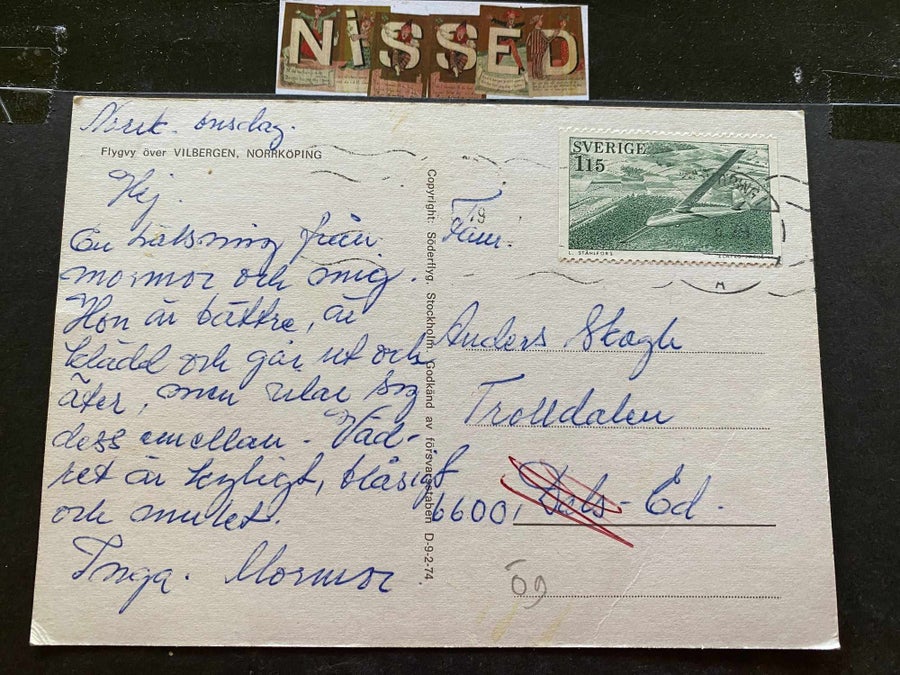 NiSSED
Norrk. onsdag.
Flygvy över VILBERGEN, NORRKÖPING
Hej.
En hälsning från
mormor och mig.
Hon är bättre, är
klädd och går ut och
äter, men vilar sig
dess emellan. Väd-
ret är kyligt, blåsigt
och mulet.
Inga. Mormor
Copyright: Söderflyg, Stockholm. Godkänd av försvarsstaben D-9-2-74.
SVERIGE
115
L. STÅHLFORS
Fam.
Anders Skogh
Trolldalen
66001 Dals-Ed.
ög